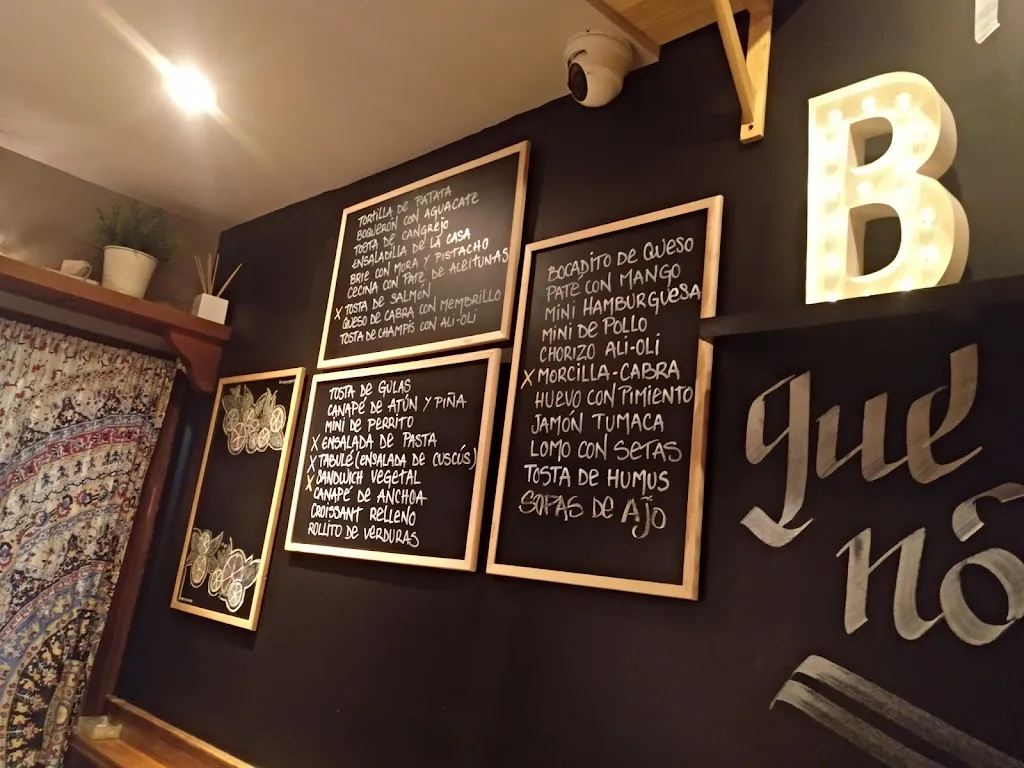 TORTILLA DE PATATA
BOQUERÓN CON AGUACATE
TOSTA DE CANGREJO
ENSALADILLA DE LA CASA
BRIE CON MORA Y PISTACHO
CECINA CON PATE DE ACEITUNAS
X TOSTA DE SALMÓN
QUESO DE CABRA CON MEMBRILLO
TOSTA DE CHAMPIS CON ALI-OLI
TOSTA DE GULAS
CANAPÉ DE ATÚN Y PIÑA
MINI DE PERRITO
X ENSALADA DE PASTA
X TABULÉ (ENSALADA DE CUSCÚS)
X SANDWICH VEGETAL
CANAPÉ DE ANCHOA
CROISSANT RELLENO
ROLLITO DE VERDURAS
BOCADITO DE QUESO
PATÉ CON MANGO
MINI HAMBURGUESA
MINI DE POLLO
CHORIZO ALI-OLI
X MORCILLA-CABRA
HUEVO CON PIMIENTO
JAMÓN TUMACA
LOMO CON SETAS
TOSTA DE HUMUS
SOPAS DE AJO
B
que
no